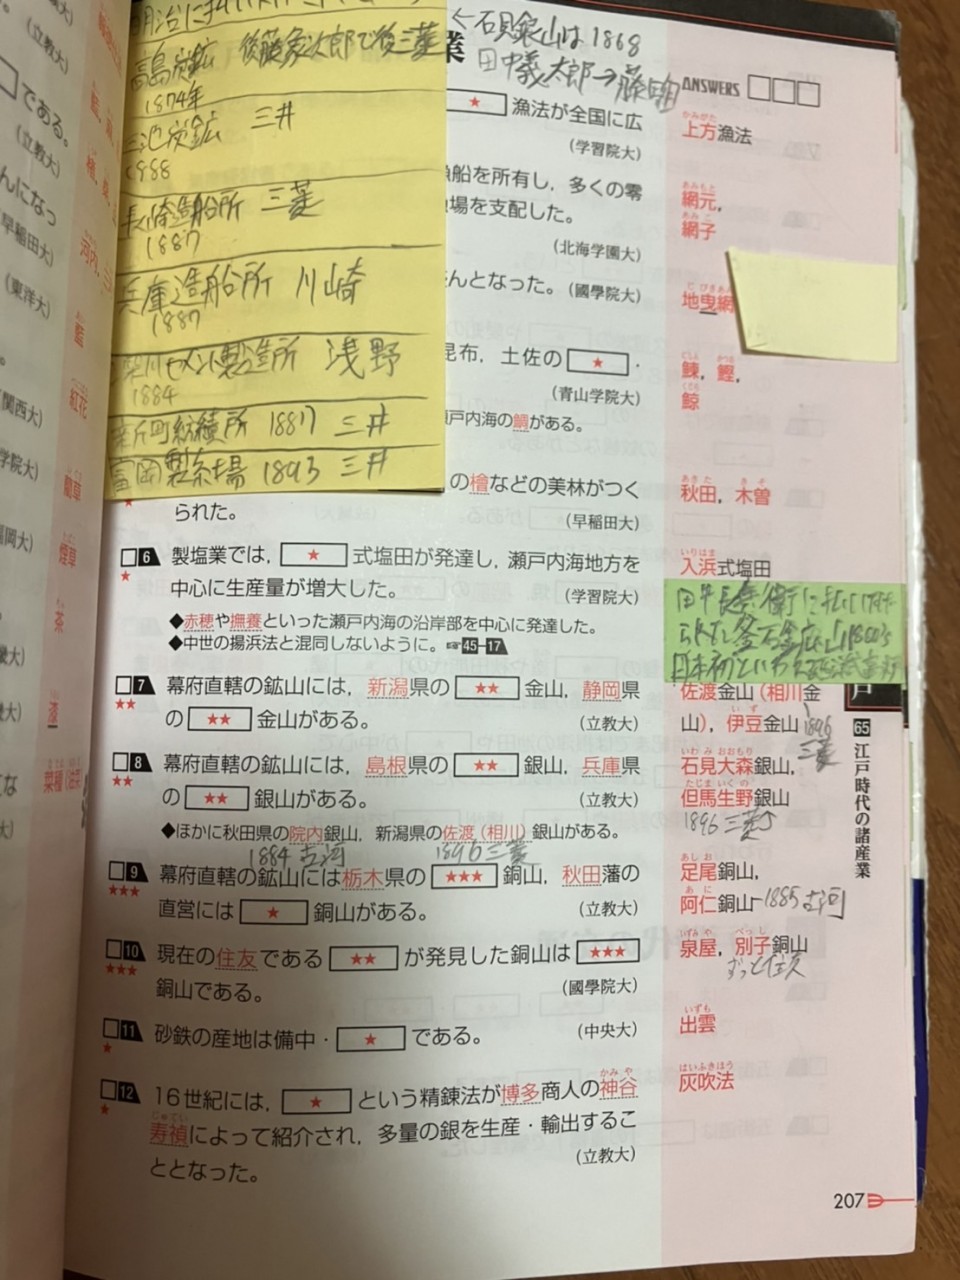 (立教大)
である。
(立教大)
んになっ
早稲田大)
(東洋大)
藍
関西大)
紅花
学院大)
藺草
福岡大)
煙草
茶
漆
大)
高島炭鉱 後藤象次郎で後三菱
1874年
三池炭鉱 三井
1988
長崎造船所 三菱
1887
兵庫造船所 川崎
1887
深川セメント製造所 浅野
1884
新町紡績所 1887 三井
富岡製糸場 1893 三井
←石見銀山は1868
田中義太郎→藤田
業
ANSWERS
★ 漁法が全国に広
(学習院大)
かみがた
上方漁法
漁船を所有し,多くの零
場を支配した。
(北海学園大)
あみもと
網元,
あみこ
網子
んとなった。(國學院大)
じびきあみ
地曳網
昆布,土佐の ★ ・
(青山学院大)
戸内海の鯛がある。
にしん かつお
鰊,鰹,
くじら
鯨
の檜などの美林がつく
★
られた。 (早稲田大)
あきた きそ
秋田,木曽
6 製塩業では, ★ 式塩田が発達し,瀬戸内海地方を
★
中心に生産量が増大した。 (学習院大)
◆赤穂や撫養といった瀬戸内海の沿岸部を中心に発達した。
◆中世の揚浜法と混同しないように。☞45-17
いりはま
入浜式塩田
7 幕府直轄の鉱山には,新潟県の ★★ 金山,静岡県
★★
の ★★ 金山がある。 (立教大)
佐渡金山(相川金
いず
山),伊豆金山
1896
三菱
8 幕府直轄の鉱山には,島根県の ★★ 銀山,兵庫県
★★
の ★★ 銀山がある。 (立教大)
◆ほかに秋田県の院内銀山,新潟県の佐渡(相川)銀山がある。
1884 古河 1896三菱
いわみ おおもり
石見大森銀山,
たじま いくの
但馬生野銀山
1896 三菱
9 幕府直轄の鉱山には栃木県の ★★★ 銅山,秋田藩の
★★★
直営には ★ 銅山がある。 (立教大)
あしお
足尾銅山,
あに
阿仁銅山-1885 古河
10 現在の住友である ★★ が発見した銅山は ★★★
★★★
銅山である。 (國學院大)
いずみや べっし
泉屋,別子銅山
ずっと住友
11 砂鉄の産地は備中・ ★ である。 (中央大)
★
いずも
出雲
12 16世紀には, ★ という精錬法が博多商人の神谷
かみや
★
じゅてい
寿禎によって紹介され,多量の銀を生産・輸出するこ
ととなった。 (立教大)
はいふきほう
灰吹法
戸
65 江戸時代の諸産業
207